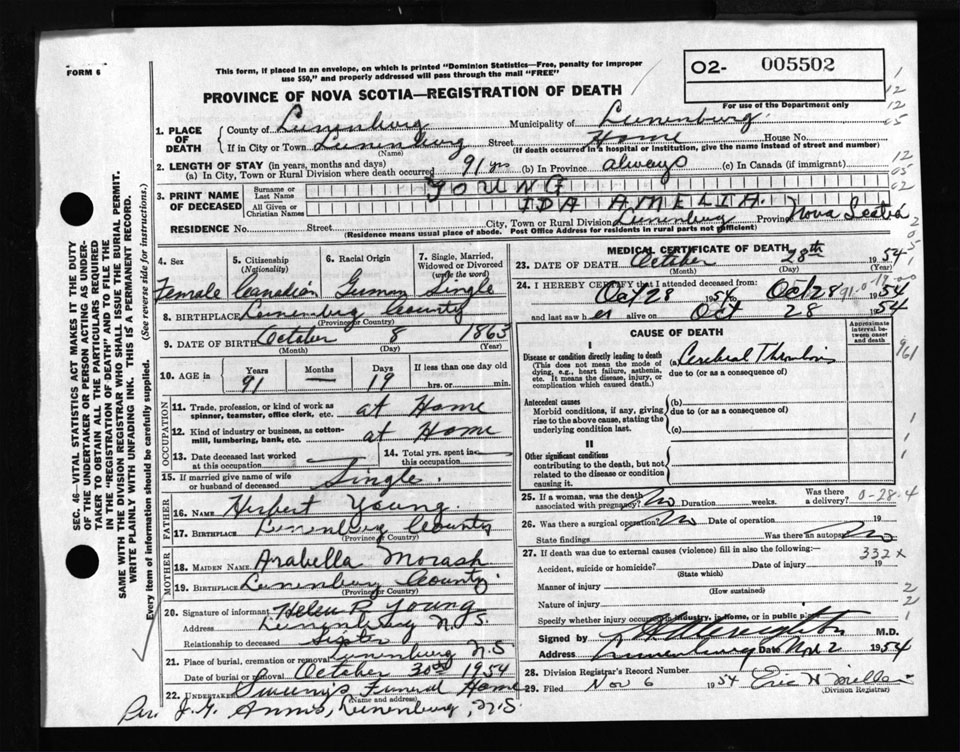 FORM 6
This form, if placed in an envelope, on which is printed "Dominion Statistics—Free, penalty for improper
use $50," and properly addressed will pass through the mail "FREE"
PROVINCE OF NOVA SCOTIA—REGISTRATION OF DEATH
02- 005502
For use of the Department only
1. PLACE OF DEATH
County of Lunenburg Municipality of Lunenburg
If in City or Town Lunenburg Street Home House No.
(Name) (If death occurred in a hospital or institution, give the name instead of street and number)
2. LENGTH OF STAY (in years, months and days)
(a) In City, Town or Rural Division where death occurred 91 yrs (b) In Province always (c) In Canada (if immigrant)
3. PRINT NAME OF DECEASED
Surname or Last Name YOUNG
All Given or Christian Names IDA AMELIA.
RESIDENCE No. Street City, Town or Rural Division Lunenburg Province Nova Scotia
(Residence means usual place of abode. Post Office Address for residents in rural parts not sufficient)
4. Sex
5. Citizenship (Nationality)
6. Racial Origin
7. Single, Married, Widowed or Divorced (write the word)
Female Canadian German Single
8. BIRTHPLACE Lunenburg County
(Province or County)
9. DATE OF BIRTH October 8 1863
(Month) (Day) (Year)
10. AGE in
Years Months Days If less than one day old
91 — 19 hrs. or min.
OCCUPATION
11. Trade, profession, or kind of work as spinner, teamster, office clerk, etc. at Home
12. Kind of industry or business, as cotton-mill, lumbering, bank, etc. at Home
13. Date deceased last worked at this occupation
14. Total yrs. spent in this occupation
15. If married give name of wife or husband of deceased Single.
FATHER
16. NAME Herbert Young
17. BIRTHPLACE Lunenburg County
(Province or County)
MOTHER
18. MAIDEN NAME Arabella Morash
19. BIRTHPLACE Lunenburg County
(Province or County)
20. Signature of informant Helen P. Young
Address Lunenburg N.S.
Relationship to deceased Sister
21. Place of burial, cremation or removal Lunenburg N.S
Date of burial or removal October 30th 1954
22. UNDERTAKER Sweeny's Funeral Home
(Name and address)
Per. J.G. Annis, Lunenburg, N.S.
MEDICAL CERTIFICATE OF DEATH
23. DATE OF DEATH October 28th 1954
(Month) (Day) (Year)
24. I HEREBY CERTIFY that I attended deceased from:
Oct 28 1954 to Oct 28 1954
and last saw her alive on Oct 28 1954
CAUSE OF DEATH
Approximate interval between onset and death
I
Disease or condition directly leading to death
(This does not mean the mode of dying, e.g., heart failure, asthenia, etc. It means the disease, injury, or complication which caused death.)
(a) Cerebral Thrombosis
due to (or as a consequence of)
Antecedent causes
Morbid conditions, if any, giving rise to the above cause, stating the underlying condition last.
(b)
due to (or as a consequence of)
(c)
II
Other significant conditions
contributing to the death, but not related to the disease or condition causing it.
25. If a woman, was the death associated with pregnancy? No Duration weeks. Was there a delivery?
0-28-4
26. Was there a surgical operation? No Date of operation 19
State findings Was there an autopsy? No
27. If death was due to external causes (violence) fill in also the following:—
332X
Accident, suicide or homicide? Date of injury 19
(State which)
Manner of injury
(How sustained)
Nature of injury
Specify whether injury occurred in industry, in home, or in public place
Signed by M.D.
Address Lunenburg Date Nov 2 1954
28. Division Registrar's Record Number
29. Filed Nov 6 1954 Eric W Miller
(Division Registrar)
SEC. 46—VITAL STATISTICS ACT MAKES IT THE DUTY
OF THE UNDERTAKER OR PERSON ACTING AS UNDER-
TAKER TO OBTAIN ALL THE PARTICULARS REQUIRED
IN THE "REGISTRATION OF DEATH" AND TO FILE THE
SAME WITH THE DIVISION REGISTRAR WHO SHALL ISSUE THE BURIAL PERMIT.
WRITE PLAINLY WITH UNFADING INK. THIS IS A PERMANENT RECORD.
Every item of information should be carefully supplied. (See reverse side for instructions.)